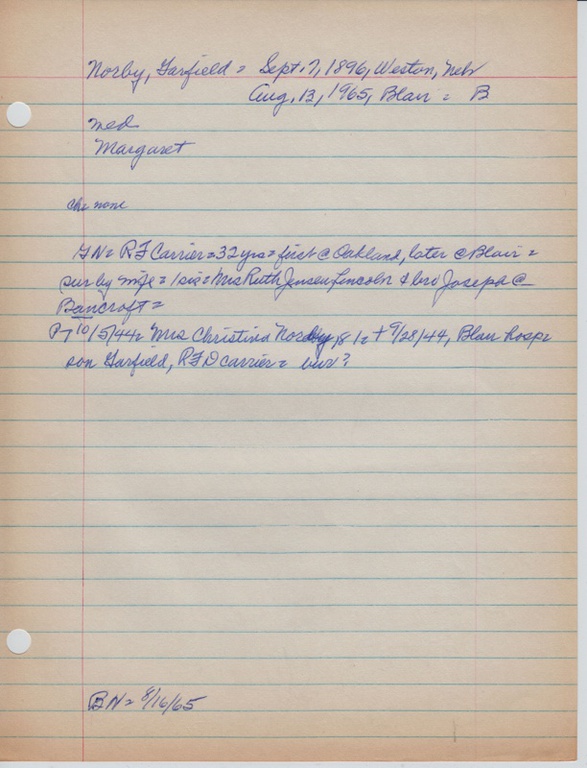 Norby, Garfield = Sept. 7, 1896, Weston, Neb
Aug. 13, 1965, Blair = B
med
Margaret
che none
GN= RF Carrier = 32 yrs = first @ Oakland, later @ Blair =
sur by wife = 1 sis = Mrs Ruth Jensen Lincoln & bro Joseph @
Bancroft =
P-T 10/5/44 = Mrs Christina Norby, 81 = + 9/28/44, Blair hosp =
son Garfield, RFD carrier = bur?
BN = 8/16/65